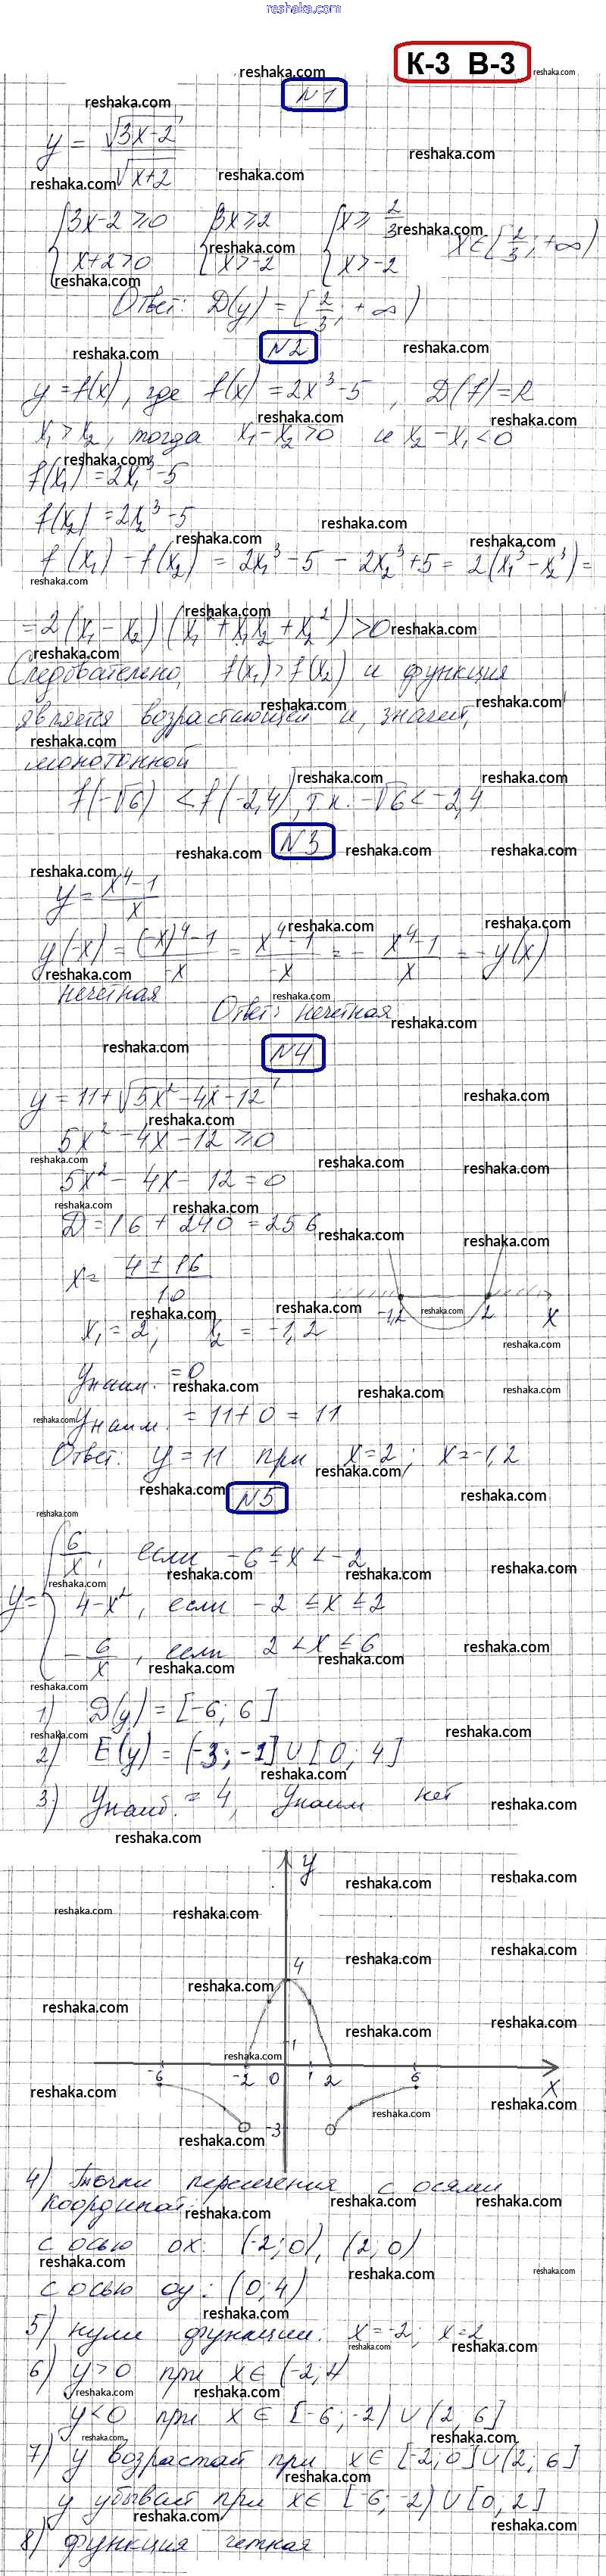 reshaka.com
К-3 В-3
N1
y = √(3x-2) / √(x+2)
{3x-2 ≥ 0 {3x ≥ 2 {x ≥ 2/3
{x+2 > 0 {x > -2 {x > -2 x ∈ [2/3; +∞)
Ответ: D(y) = [2/3; +∞)
N2
y = f(x), где f(x) = 2x³-5, D(f) = R
x₁ > x₂, тогда x₁-x₂ > 0 и x₂-x₁ < 0
f(x₁) = 2x₁³-5
f(x₂) = 2x₂³-5
f(x₁) - f(x₂) = 2x₁³-5 - 2x₂³+5 = 2(x₁³-x₂³) =
= 2(x₁-x₂)(x₁²+x₁x₂+x₂²) > 0
Следовательно, f(x₁) > f(x₂) и функция
является возрастающей и, значит,
монотонной
f(-√6) < f(-2,4), т.к. -√6 < -2,4
N3
y = (x⁴-1)/x
y(-x) = ((-x)⁴-1)/(-x) = (x⁴-1)/(-x) = - (x⁴-1)/x = -y(x)
нечетная
Ответ: нечетная
N4
y = 11+√(5x²-4x-12)
5x²-4x-12 ≥ 0
5x²-4x-12 = 0
D = 16+240 = 256
x = (4±16)/10
x₁ = 2; x₂ = -1,2
-1,2 2 x
yнаим. = 0
yнаим. = 11+0 = 11
Ответ: y = 11 при x = 2; x = -1,2
N5
y = { 6/x, если -6 ≤ x < -2
4-x², если -2 ≤ x ≤ 2
-6/x, если 2 < x ≤ 6
1) D(y) = [-6; 6]
2) E(y) = (-3; -1] ∪ [0; 4]
3) yнаиб. = 4, yнаим нет
y
4
1
-6 -2 0 1 2 6 x
-3
4) Точки пересечения с осями
координат:
с осью ox: (-2; 0), (2; 0)
с осью oy: (0; 4)
5) нули функции: x = -2; x = 2
6) y > 0 при x ∈ (-2, 4)
y < 0 при x ∈ [-6; -2) ∪ (2, 6]
7) y возрастает при x ∈ [-2; 0] ∪ (2; 6]
y убывает при x ∈ [-6; -2) ∪ [0, 2]
8) функция четная